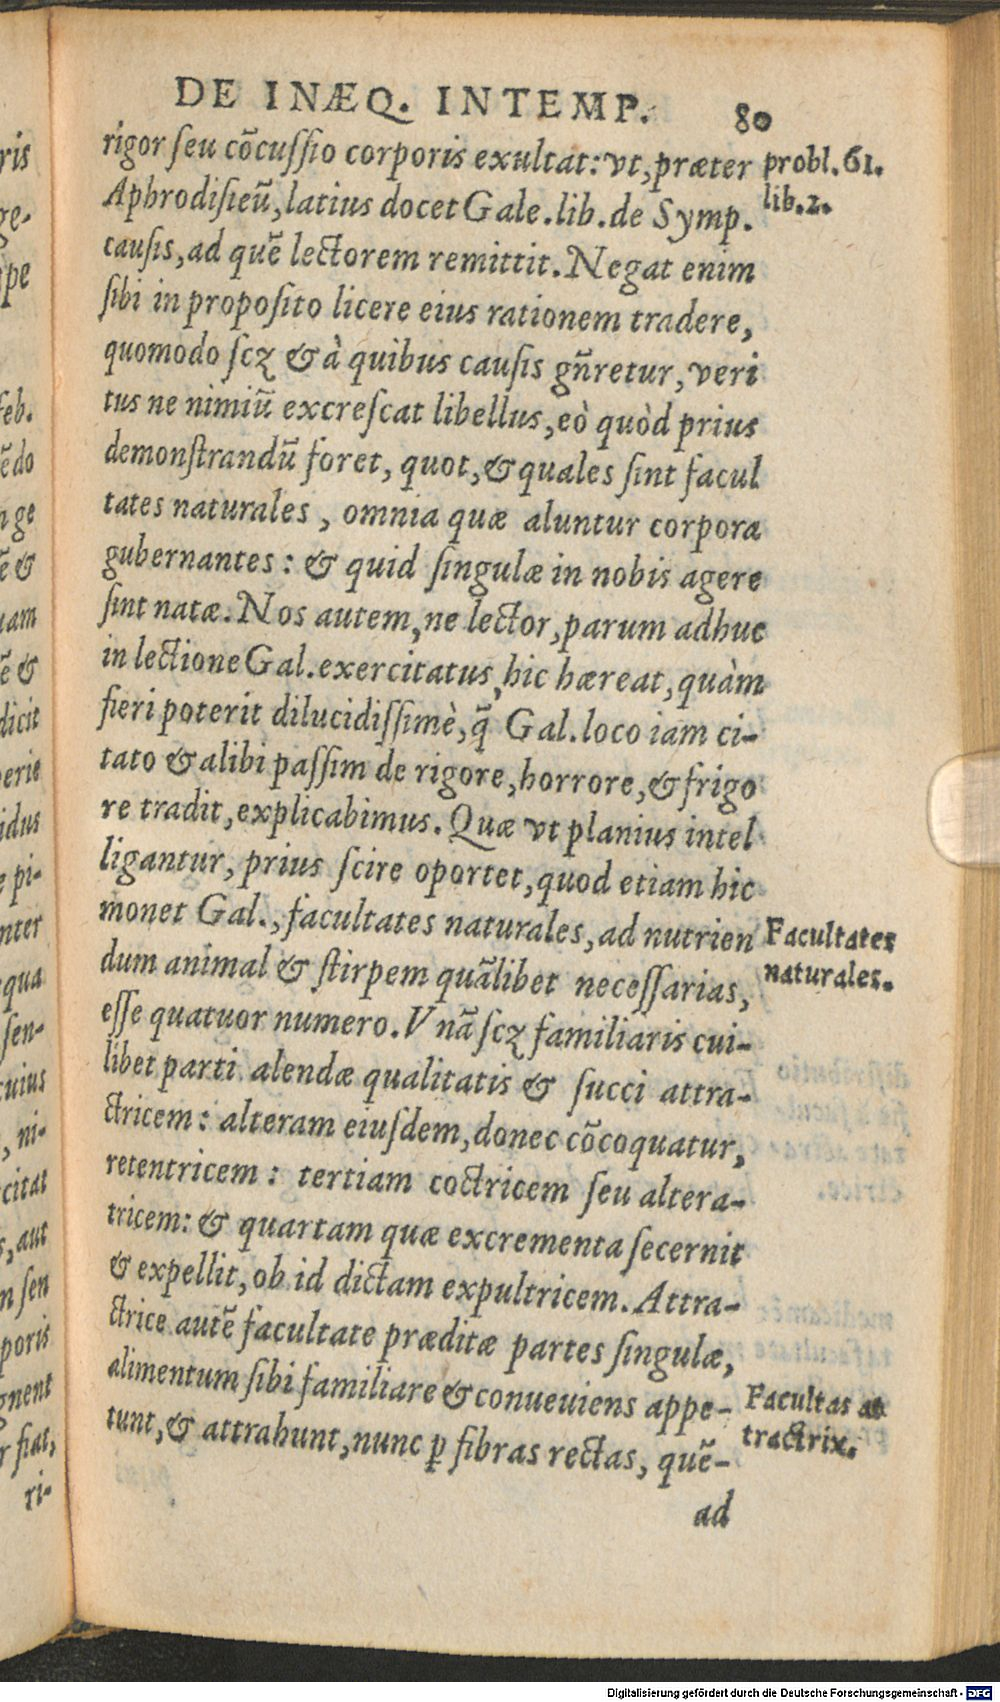 DE INÆQ. INTEMP. 80
rigor ſeu cõcuſſio corporis exultat: vt, præter
probl. 61.
Aphrodiſieũ, latius docet Gale. lib. de Symp.
lib. 2.
cauſis, ad quẽ lectorem remittit. Negat enim
ſibi in propoſito licere eius rationem tradere,
quomodo ſcꝫ & à quibus cauſis gñretur, veri
tus ne nimiũ excreſcat libellus, eò quòd prius
demonſtrandũ foret, quot, & quales ſint facul
tates naturales, omnia quæ aluntur corpora
gubernantes: & quid ſingulæ in nobis agere
ſint natæ. Nos autem, ne lector, parum adhuc
in lectione Gal. exercitatus, hic hæreat, quàm
fieri poterit dilucidiſſimè, q̃ Gal. loco iam ci-
tato & alibi paſſim de rigore, horrore, & frigo
re tradit, explicabimus. Quæ vt planius intel
ligantur, prius ſcire oportet, quod etiam hic
monet Gal., facultates naturales, ad nutrien
Facultates
dum animal & ſtirpem quãlibet neceſſarias,
naturales.
eſſe quatuor numero. Vnã ſcꝫ familiaris cui-
libet parti alendæ qualitatis & ſucci attra-
ctricem: alteram eiuſdem, donec cõcoquatur,
retentricem: tertiam coctricem ſeu altera-
tricem: & quartam quæ excrementa ſecernit
& expellit, ob id dictam expultricem. Attra-
ctrice autẽ facultate præditæ partes ſingulæ,
alimentum ſibi familiare & conueuiens appe-
Facultas at
tunt, & attrahunt, nunc ꝑ fibras rectas, quẽ-
tractrix.
ad
ris
ge-
pe
feb.
ẽdo
n ge
ẽ &
uam
ẽ &
dicit
erie
idus
e pi-
nter
qua
ſen-
cuius
, ni-
citat
s, aut
n ſen
poris
nent
r fiat,
ri-
Digitalisierung gefördert durch die Deutsche Forschungsgemeinschaft - DFG